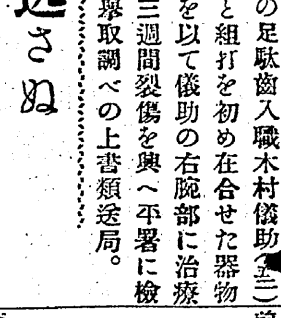 の足駄齒入職木村儀助(五二)
と組打を初め在合せた器物
を以て儀助の右腕部に治療
三週間裂傷を與へ平署に檢
擧取調べの上書類送局。
さぬ